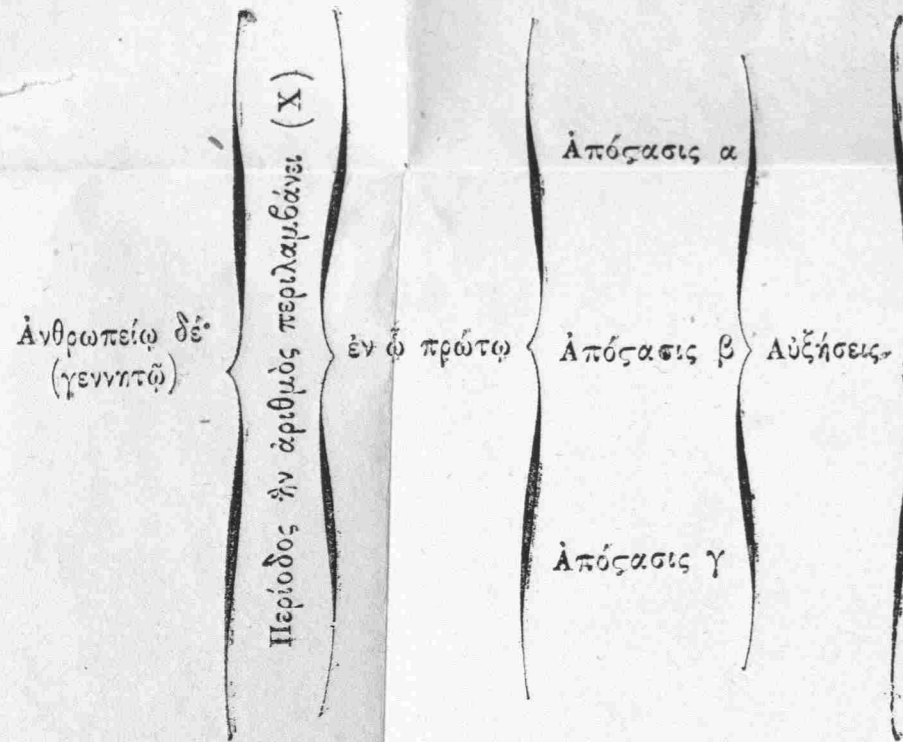 Ἀνθρωπείῳ δέ·
(γεννητῷ)
Περίοδος ἣν ἀριθμὸς περιλαμβάνει (Χ)
ἐν ᾧ πρώτῳ
Ἀπόϛασις α
Ἀπόϛασις β
Ἀπόϛασις γ
Αὐξήσεις.